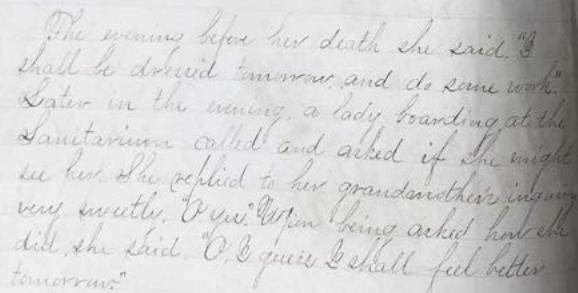 The evening before her death she said, "I
shall be dressed tomorrow, and do some work."
Later in the evening, a lady boarding at the
Sanitarium called and asked if she might
see her. She replied to her grandmother's inquiry
very sweetly, "O yes." Upon being asked how she
did, she said, "O, I guess I shall feel better
tomorrow."